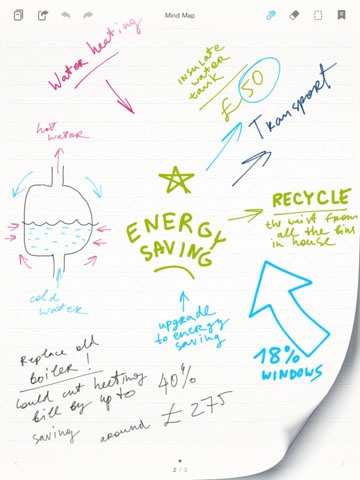 Mind Map
Water heating
insulate
water
tank
£50
Transport
hot
water
ENERGY
SAVING
RECYCLE
the waist from
all the bins
in house
cold
water
upgrade
to energy
saving
18%
WINDOWS
Replace old
boiler!
Could cut heating
bill by up to 40%
saving around £275
2 / 3